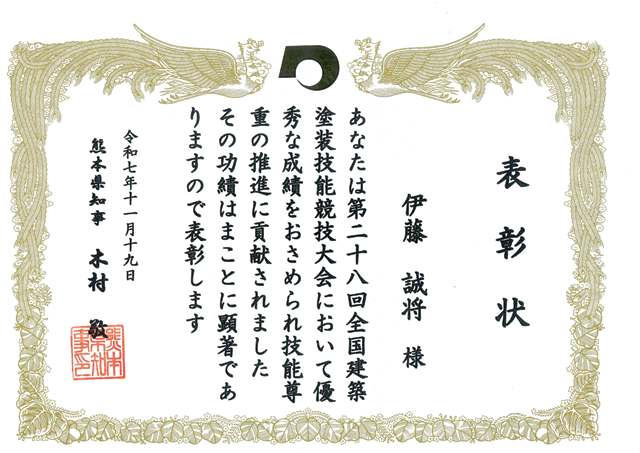 表彰状
伊藤 誠将 様
あなたは第二十八回全国建築
塗装技能競技大会において優
秀な成績をおさめられ技能尊
重の推進に貢献されました
その功績はまことに顕著であ
りますので表彰します
令和七年十一月十九日
熊本県知事 木村 敬
熊本
県知
事印